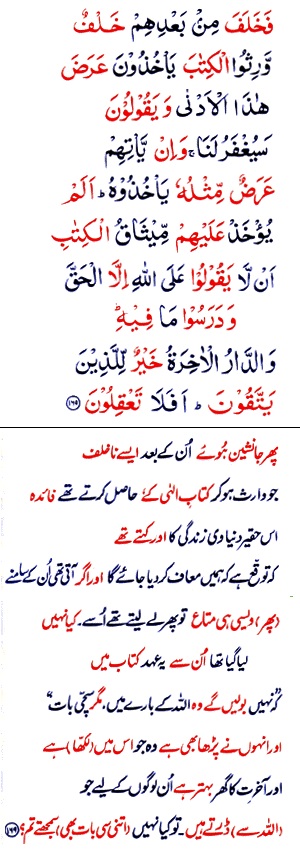 فَخَلَفَ مِنْۢ بَعْدِهِمْ خَلْفٌ
وَّرِثُوا الْكِتٰبَ يَاْخُذُوْنَ عَرَضَ
هٰذَا الْاَدْنٰى وَيَقُوْلُوْنَ
سَيُغْفَرُ لَنَا ۚ وَاِنْ يَّاْتِهِمْ
عَرَضٌ مِّثْلُهٗ يَاْخُذُوْهُ ؕ اَلَمْ
يُؤْخَذْ عَلَيْهِمْ مِّيْثَاقُ الْكِتٰبِ
اَنْ لَّا يَقُوْلُوْا عَلَى اللّٰهِ اِلَّا الْحَقَّ
وَدَرَسُوْا مَا فِيْهِ ؕ
وَالدَّارُ الْاٰخِرَةُ خَيْرٌ لِّلَّذِيْنَ
يَتَّقُوْنَ ؕ اَفَلَا تَعْقِلُوْنَ ﴿۱۶۹﴾
پھر جانشین ہُوئے اُن کے بعد ایسے ناخلف
جو وارث ہو کر کتابِ الٰہی کے حاصل کرتے تھے فائدہ
اس حقیر دنیاوی زندگی کا اور کہتے تھے
کہ توقّع ہے کہ ہمیں معاف کر دیا جائے گا اور اگر آتی تھی اُن کے سامنے
(پھر) ویسی ہی متاع تو پھر لے لیتے تھے اُسے۔ کیا نہیں
لیا گیا تھا اُن سے یہ عہد کتاب میں
کہ نہیں بولیں گے وہ اللہ کے بارے میں، مگر سچّی بات"
اور انہوں نے پڑھا بھی ہے وہ جو اس میں (لکھّا) ہے
اور آخرت کا گھر بہتر ہے اُن لوگوں کے لیے جو
(اللہ سے) ڈرتے ہیں۔ تو کیا نہیں (اتنی سی بات بھی) سمجھتے تم؟ ﴿۱۶۹﴾